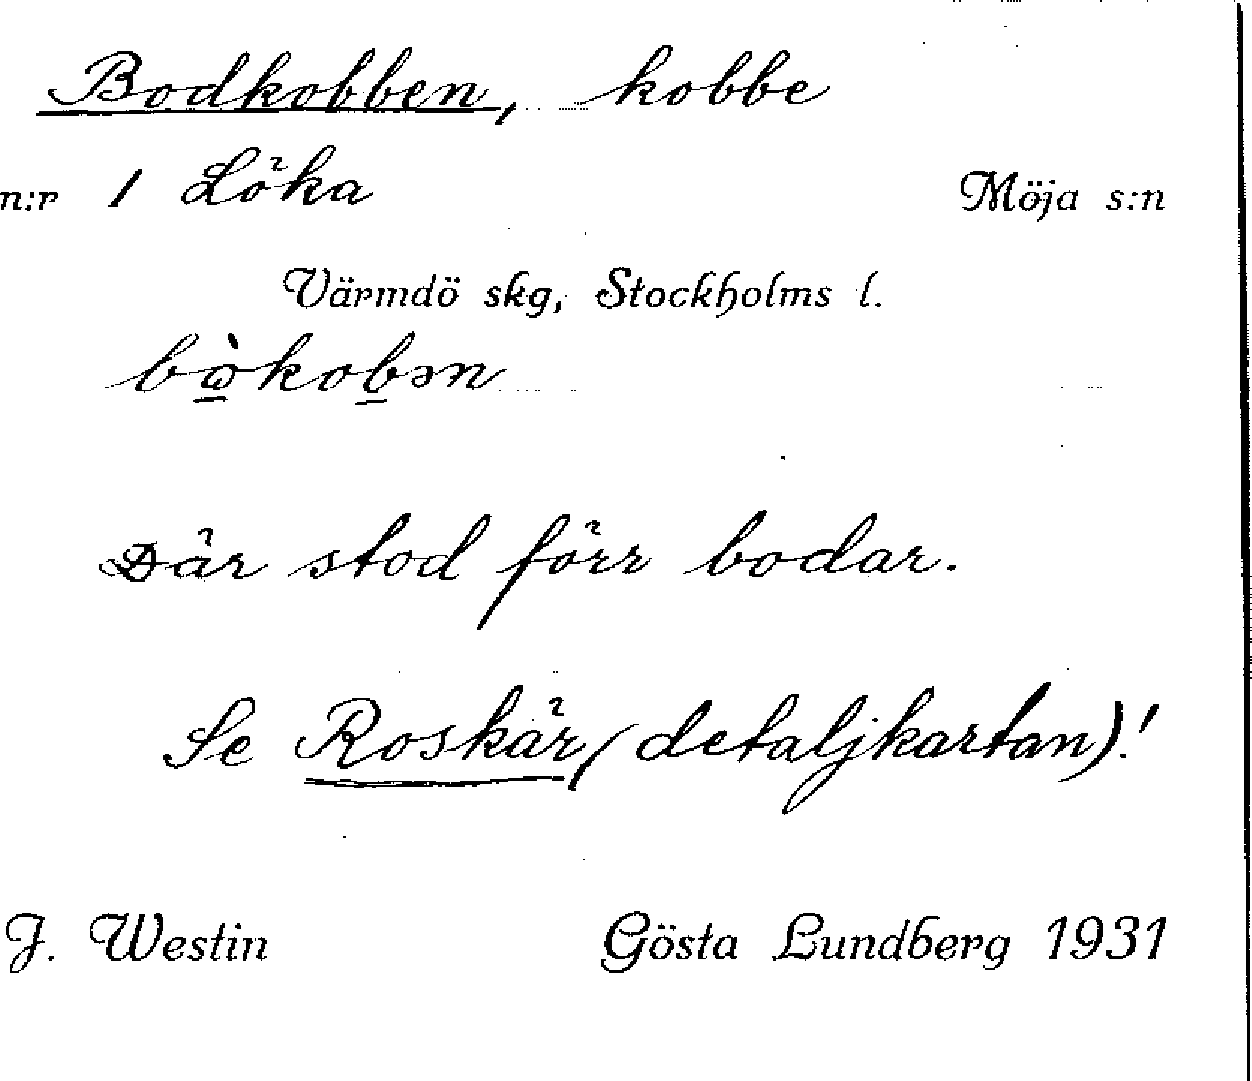 Bodkobben, kobbe
n:r 1 Löka Möja s:n
Värmdö skg, Stockholms l.
Där stod förr bodar.
Se Roskär (detaljkartan)!
J. Westin Gösta Lundberg 1931